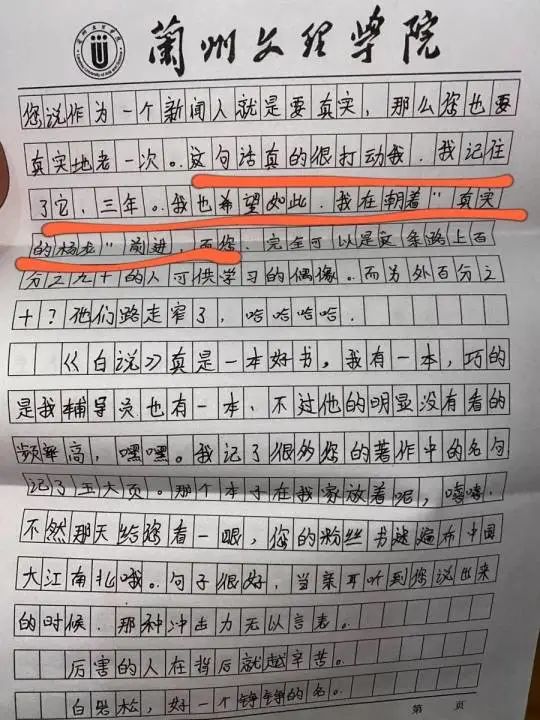 兰州文理学院
您说作为一个新闻人就是要真实,那么您也要
真实地老一次。这句话真的很打动我。我记住
了它,三年。我也希望如此,我在朝着"真实
的杨龙"前进,而您,完全可以是这条路上百
分之九十的人可供学习的偶像。而另外百分之
十?他们路走窄了,哈哈哈哈。
《白说》真是一本好书,我有一本,巧的
是我辅导员也有一本,不过他的明显没有看的
频率高,嘿嘿。我记了很多您的著作中的名句
记了五大页。那个本子在我家放着呢,嘻嘻,
不然那天给您看一眼,您的粉丝书迷遍布中国
大江南北哦。句子很好,当亲耳听到您说出来
的时候,那种冲击力无以言表。
厉害的人在背后就越辛苦。
白岩松,好一个铮铮的名。
第 页